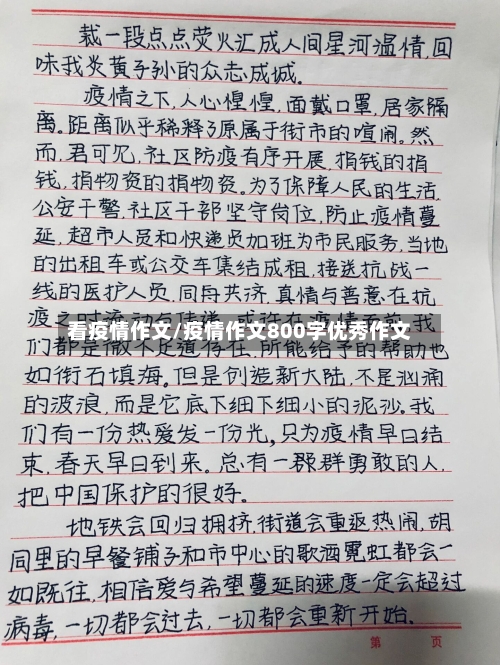 裁一段点点荧火汇成人间星河温情,回
味我炎黄子孙的众志成城。
疫情之下,人心惶惶,面戴口罩,居家隔
离。距离似乎稀释了原属于街市的喧闹。然
而,君可见,社区防疫有序开展,捐钱的捐
钱,捐物资的捐物资。为了保障人民的生活,
公安干警,社区干部坚守岗位,防止疫情蔓
延,超市人员和快递员加班为市民服务,当地
的出租车或公交车集结成租,接送抗战一
线的医护人员,同舟共济,真情与善意在抗
疫之时流动与传递。或许在疫情面前,我
看疫情作文/疫情作文800字优秀作文
们都是微不足道存在,所能给予的帮助也
如衔石填海。但是创造新大陆,不是汹涌
的波浪,而是它底下细下细小的泥沙。我
们有一份热爱发一份光,只为疫情早日结
束,春天早日到来。总有一群群勇敢的人,
把中国保护的很好。
地铁会回归拥挤,街道会重返热闹,胡
同里的早餐铺子和市中心的歌酒霓虹都会一
如既往,相信爱与希望蔓延的速度一定会超过
病毒,一切都会过去,一切都会重新开始.
第 页